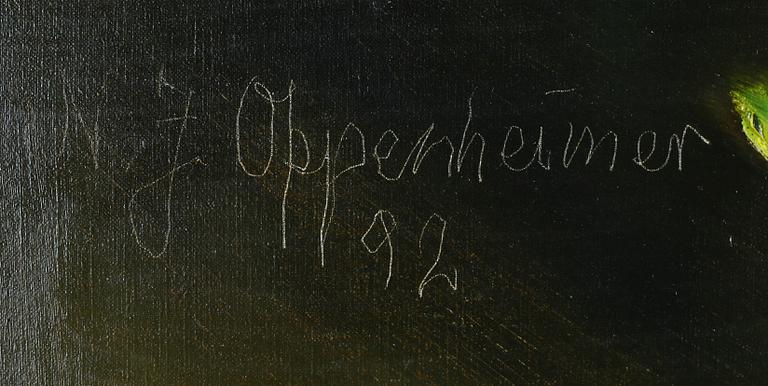 N. J. Oppenheimer
92